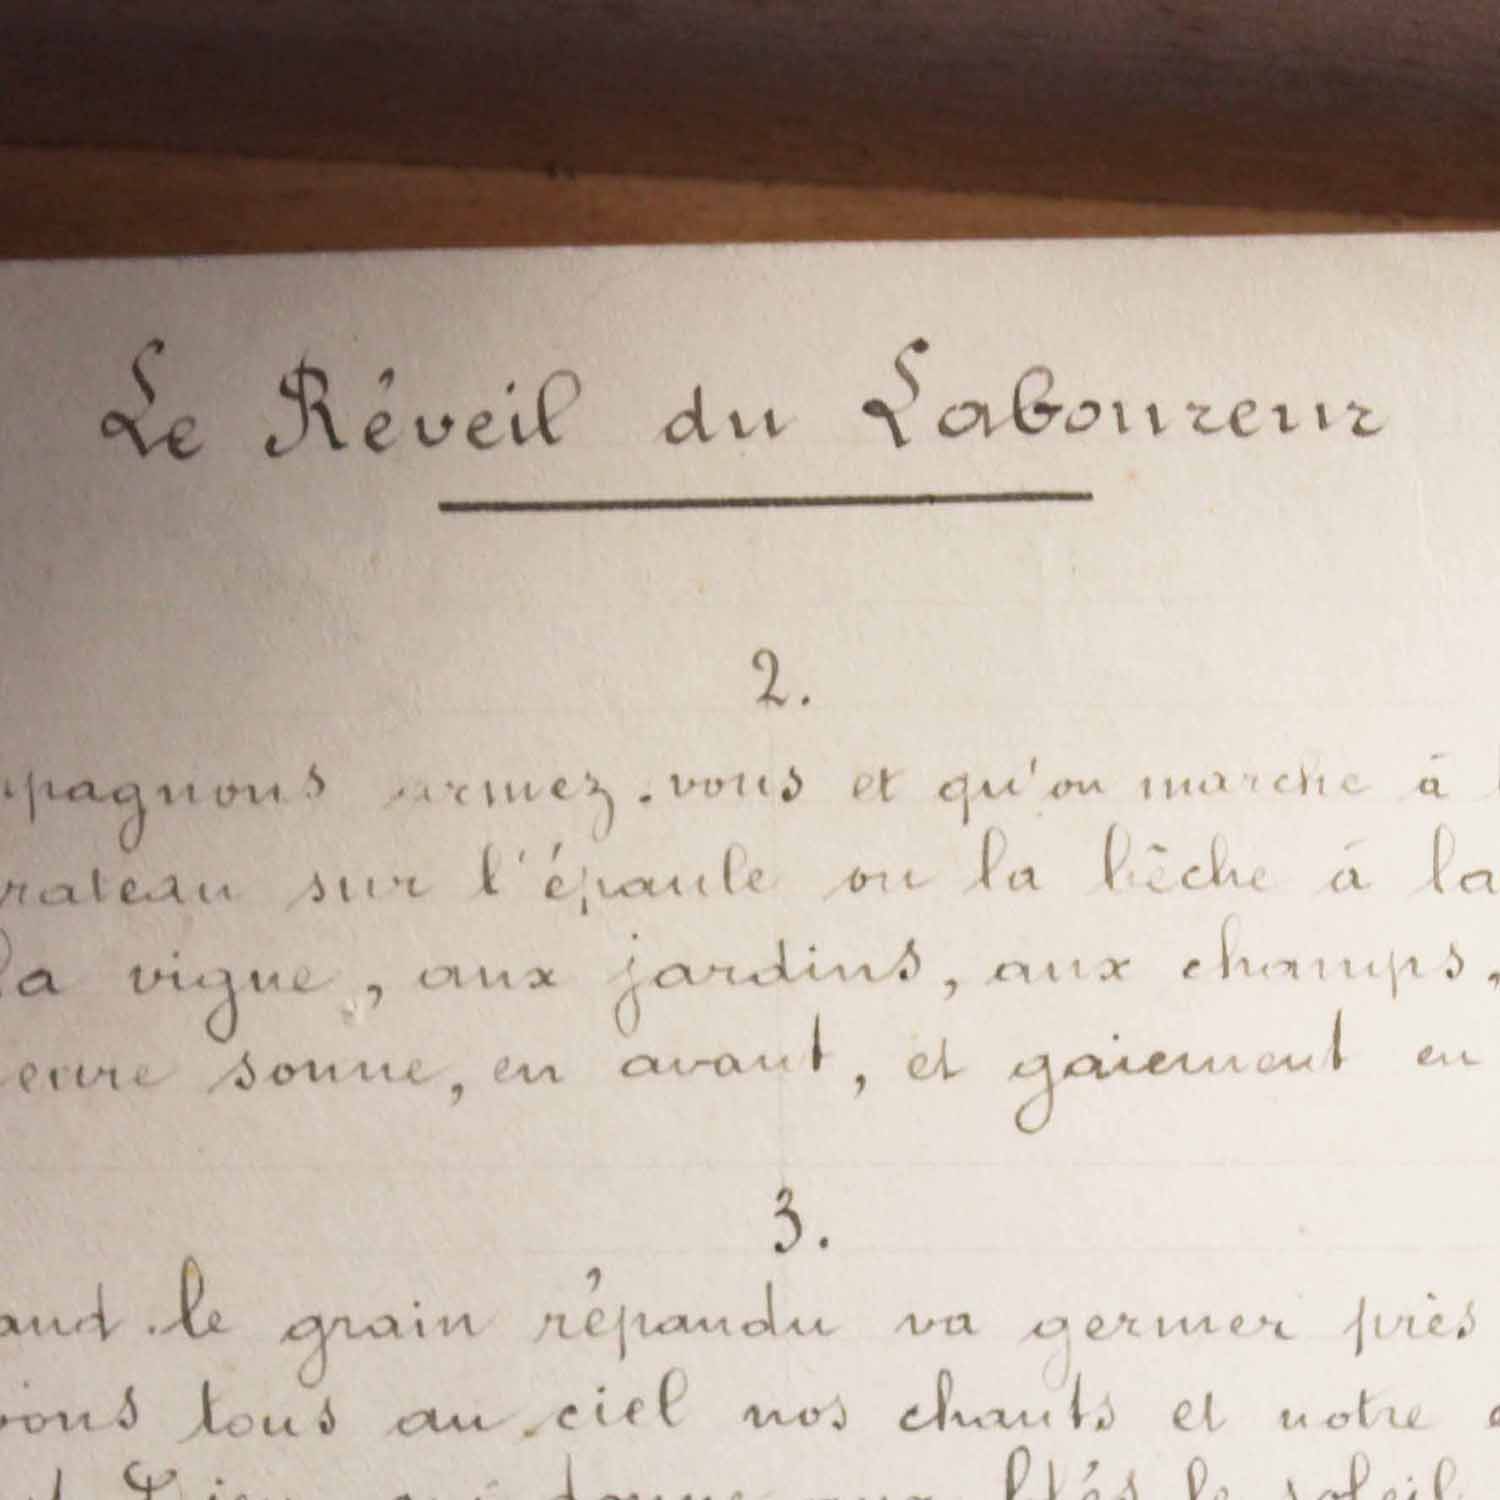 Le Réveil du Laboureur
2.
pagnons armez-vous et qu'on marche à
rateau sur l'épaule ou la bêche à la
la vigne, aux jardins, aux champs,
eure sonne, en avant, et gaiement en
3.
and le grain répandu va germer près
vons tous au ciel nos chants et notre
Dieu qui donne aux blés le soleil